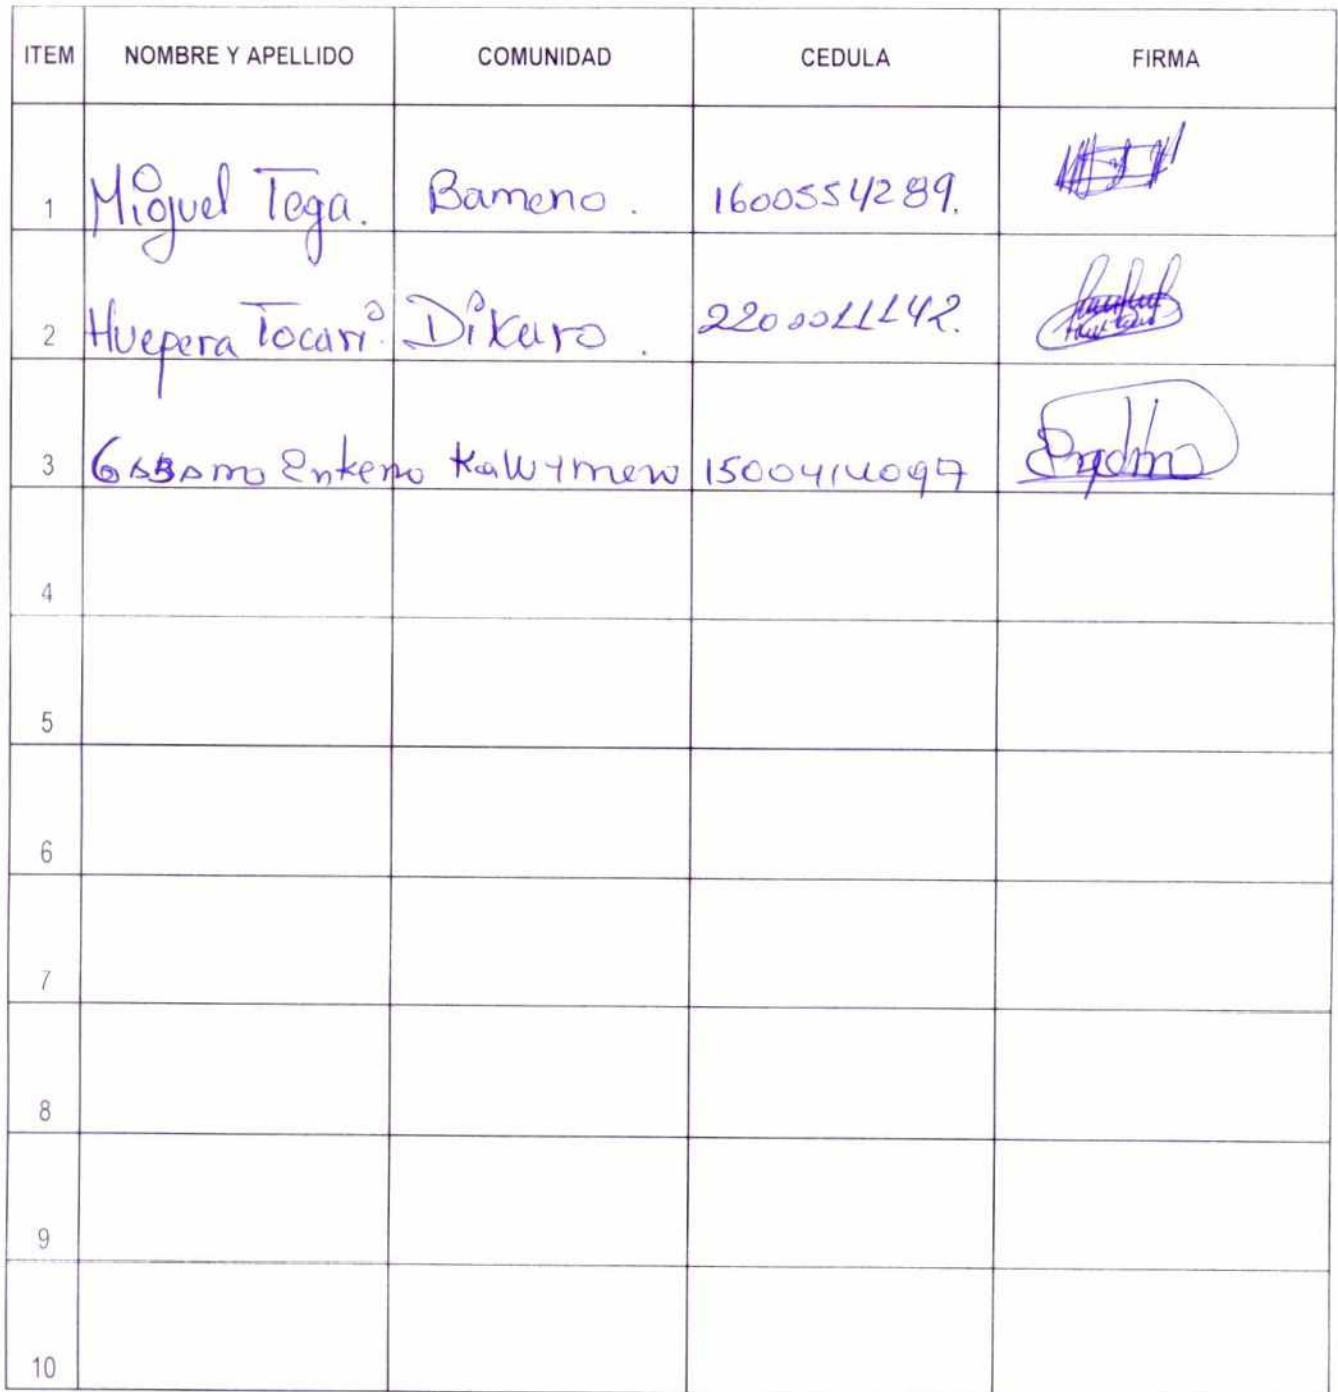 ITEM NOMBRE Y APELLIDO COMUNIDAD CEDULA FIRMA
1 Miguel Tega. Bameno. 1600554289.
2 Huepera Tocari Dikaro. 2200011142.
3 Enkeno 1500414097
4
5
6
7
8
9
10